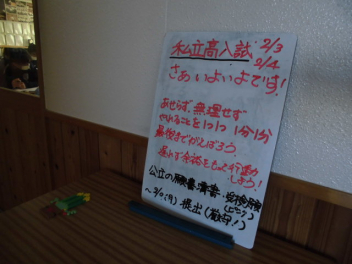 私立高入試 2/3
2/4
さあ いよいよです!
あせらず、無理せず
やれることを1つ1つ 1分1分
最後までがんばろう。
遅れず余裕をもって行動
しよう!
公立の願書清書・受検票
(ピンク)
提出(厳守!)